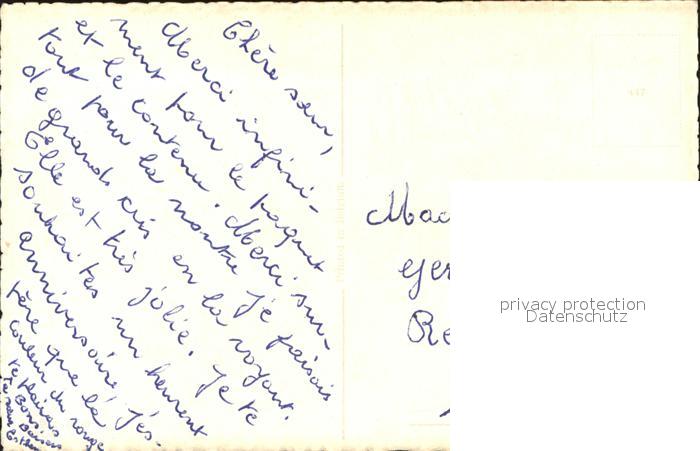 Chère seur,
Merci infini-
ment pour le paquet
et le contenu. Merci sur-
tout pour la montre je faisais
de grands kris en la voyant.
Elle est très jolie. Je te
souhaites un heureut
anniversaire, j'es-
père que la
couleur du rouge
te plairais
Bons Baisers
Ta seur
Printed in Belgium
privacy protection
Datenschutz